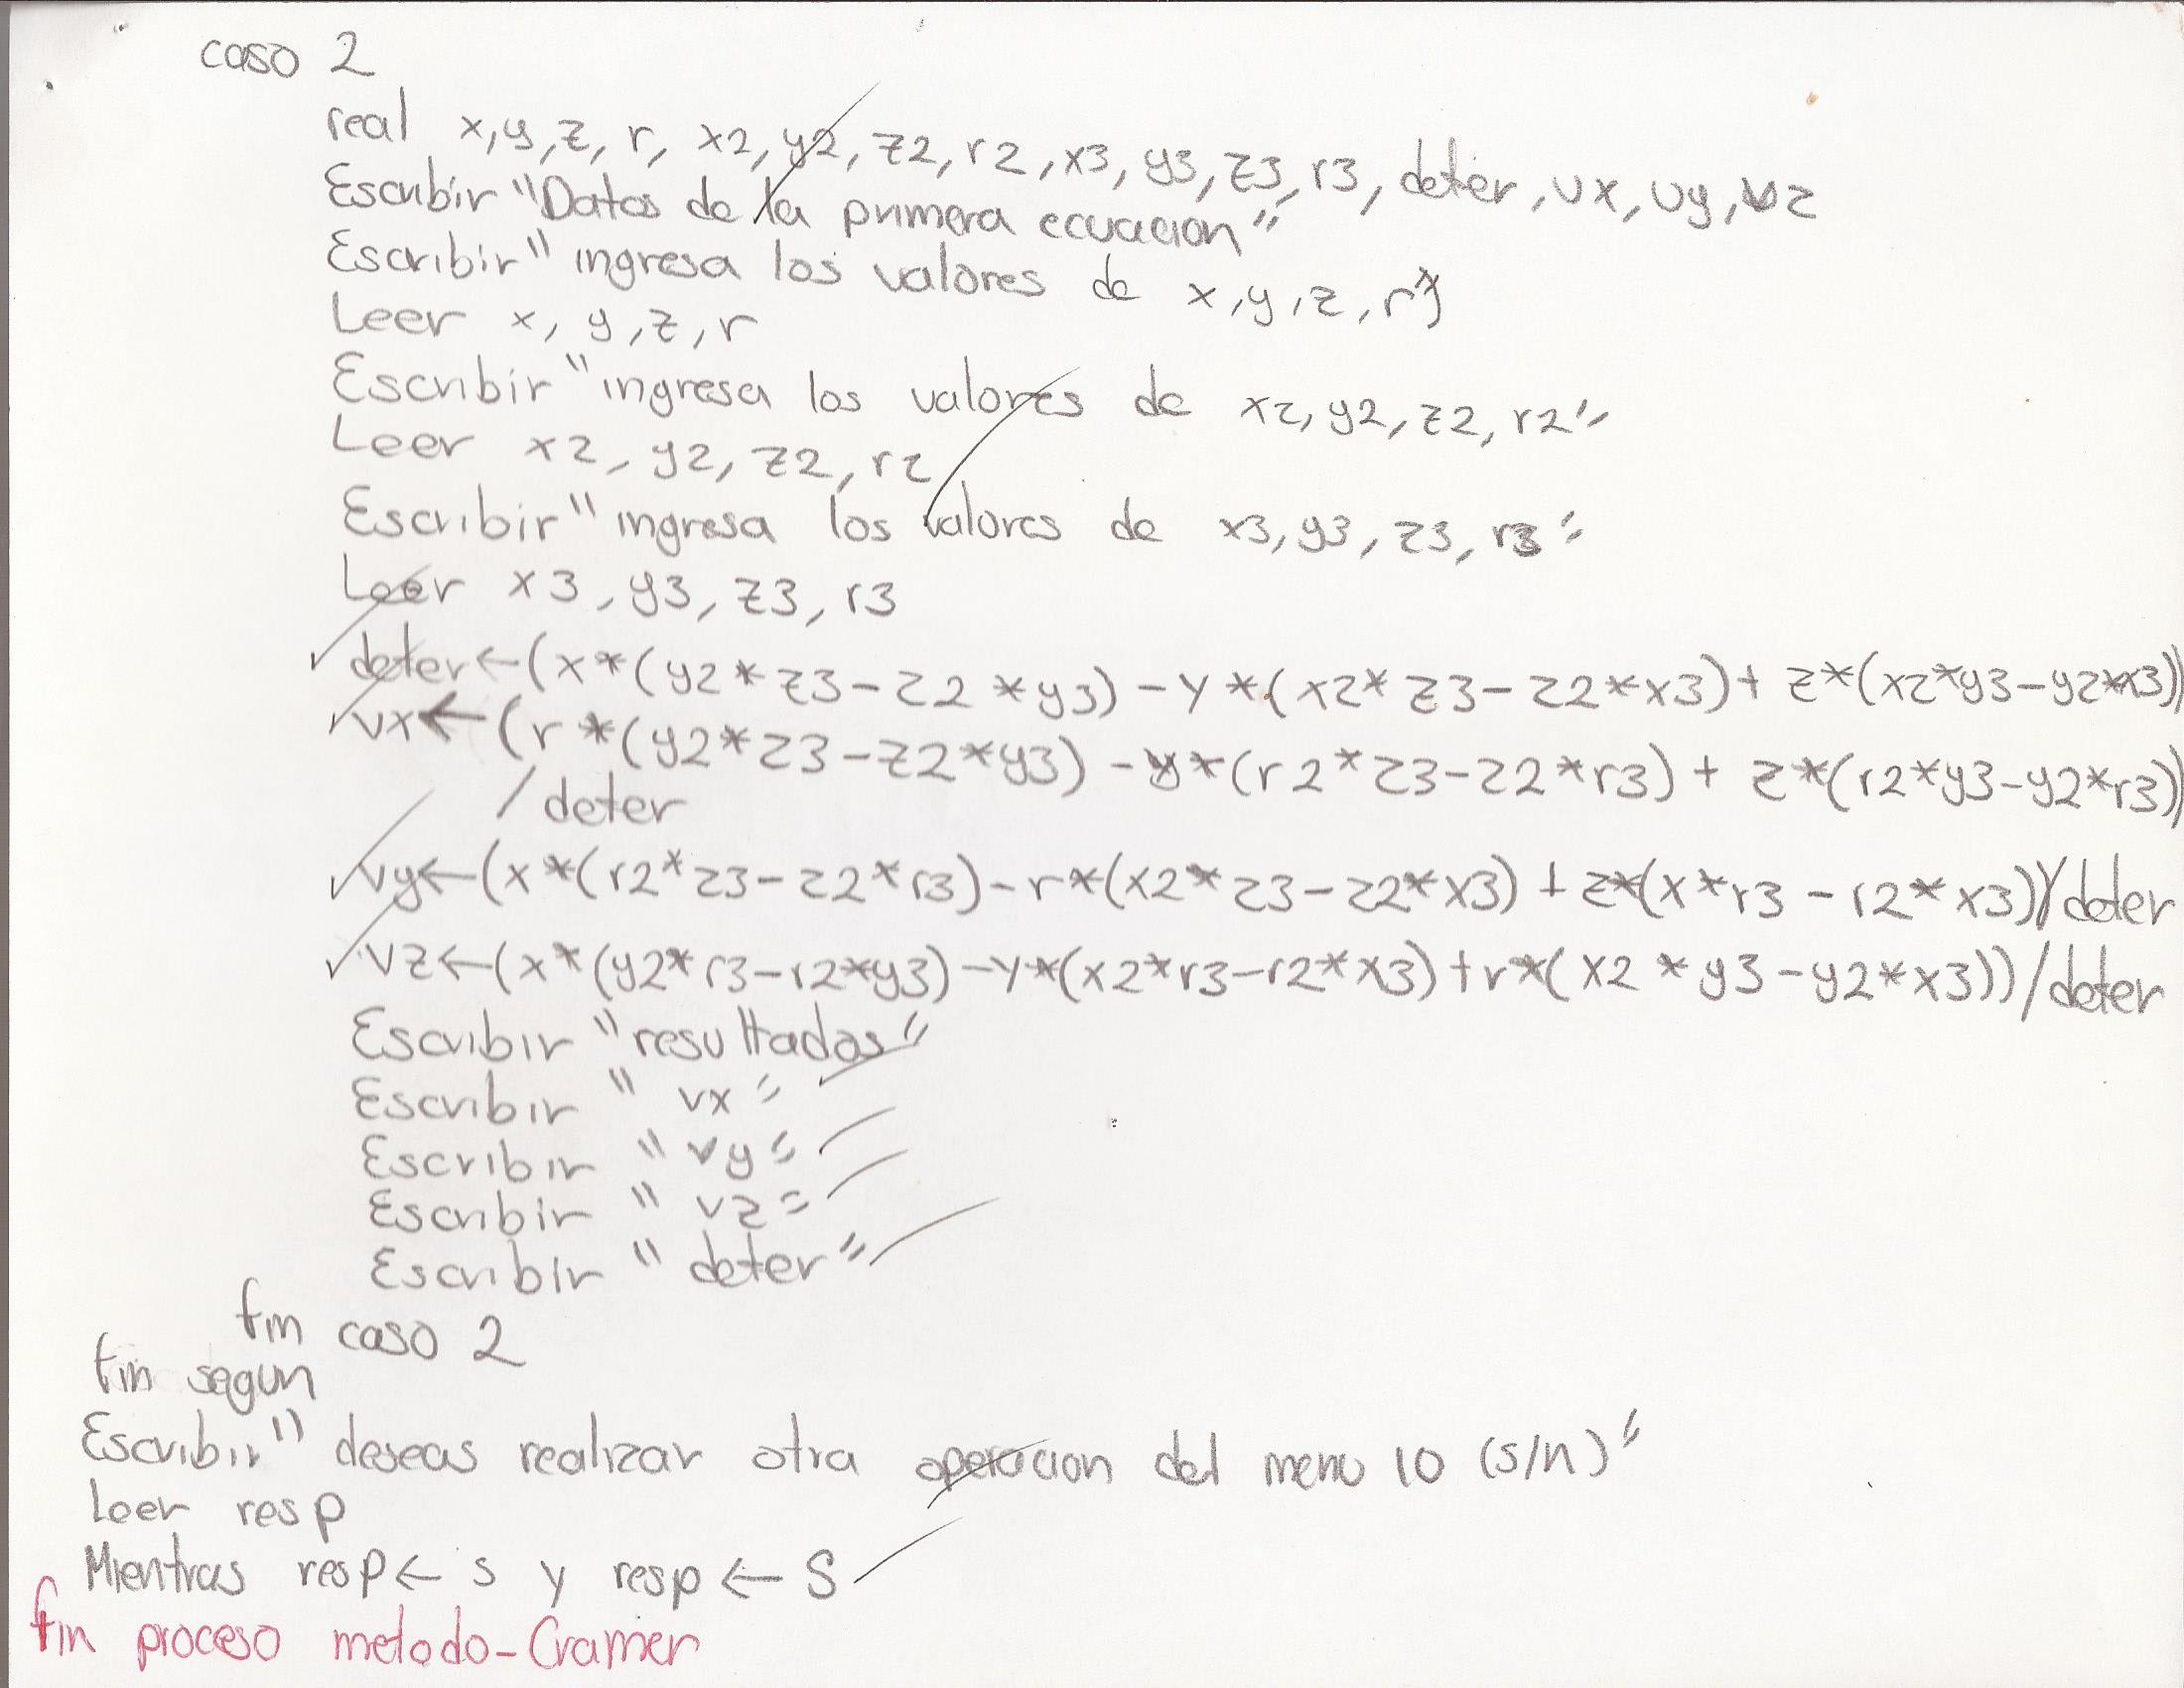 caso 2
real x,y,z,r, x2,y2,z2,r2,x3,y3,z3,r3,deter,vx,vy,vz
Escribir "Datos de la primera ecuacion"
Escribir "ingresa los valores de x,y,z,r"
Leer x, y,z,r
Escribir "ingresa los valores de x2,y2,z2,r2"
Leer x2, y2, z2, r2
Escribir "ingresa los valores de x3,y3,z3,r3"
Leer x3, y3, z3, r3
deter←(x*(y2*z3-z2*y3)-y*(x2*z3-z2*x3)+z*(x2*y3-y2*x3))
vx←(r*(y2*z3-z2*y3)-y*(r2*z3-z2*r3)+z*(r2*y3-y2*r3))
/deter
vy←(x*(r2*z3-z2*r3)-r*(x2*z3-z2*x3)+z*(x*r3-r2*x3))/deter
vz←(x*(y2*r3-r2*y3)-y*(x2*r3-r2*x3)+r*(x2*y3-y2*x3))/deter
Escribir "resultados"
Escribir "vx"
Escribir "vy"
Escribir "vz"
Escribir "deter"
fin caso 2
fin segun
Escribir "deseas realizar otra operacion del menu 10 (s/n)"
Leer resp
Mientras resp← s y resp ← S
fin proceso metodo-Cramer